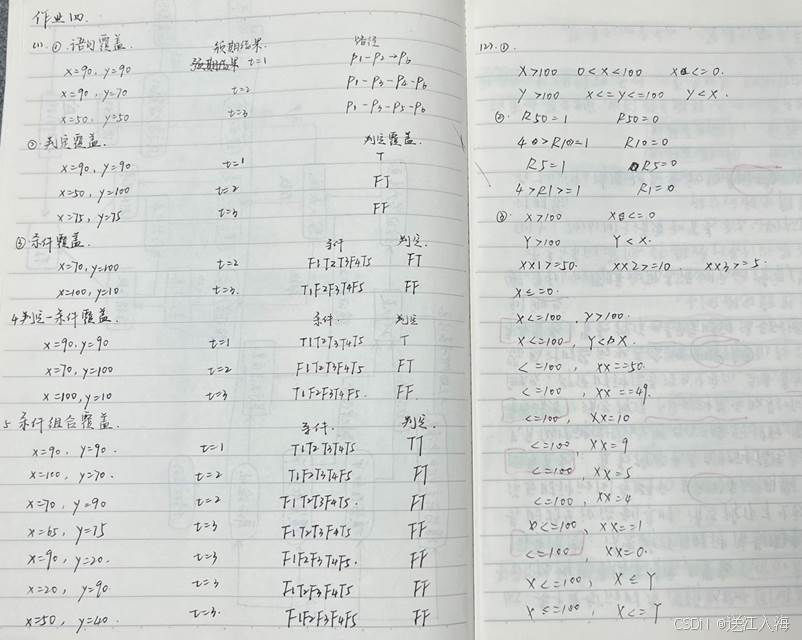 作业四.
(1). ① 语句覆盖. 预期结果 路径
x=90, y=90 t=1 P1-P2-P6
x=90, y=70 t=2 P1-P3-P4-P6
x=50, y=50 t=3 P1-P3-P5-P6
② 判定覆盖. 判定覆盖.
x=90, y=90 t=1 T
x=50, y=100 t=2 FT
x=75, y=75 t=3 FF
③ 条件覆盖. 条件 判定.
x=70, y=100 t=2 F1T2T3F4T5 FT
x=100, y=10 t=3. T1F2F3T4F5 FF
4 判定-条件覆盖. 条件. 判定
x=90, y=90 t=1 T1T2T3T4T5 T
x=70, y=100 t=2 F1T2T3F4T5 FT
x=100, y=10 t=3 T1F2F3T4F5. FF.
5 条件组合覆盖. 条件. 判定.
x=90, y=90. t=1 T1T2T3T4T5 TT
x=100, y=70. t=2 T1F2T3T4F5 FT
x=70, y=90 t=2 F1T2T3F4T5. FT
x=65, y=75 t=3 F1F2T3F4T5 FF
x=90, y=20. t=3 F1F2F3T4F5. FF
x=20, y=90. t=3 F1T2F3F4T5 FF
x=50, y=40. t=3. F1F2F3F4F5 FF
(2). ①.
X>100 0<X<100 X<=0.
Y>100 X<=Y<=100 Y<X.
②. R50=1 R50=0
4>R10=1 R10=0
R5=1 R5=0
4>R1>=1 R1=0
③. X>100 X<=0.
Y>100 Y<X.
XX1>=50. XX2>=10. XX3>=5.
X≤=0.
X<=100, Y>100.
X<=100, Y<X.
<=100, XX==50.
<=100, XX==49.
<=100, XX=10
<=100, XX=9
<=100, XX=5
<=100, XX=4
<=100, XX==1
<=100, XX=0.
X<=100, X≤Y
X≤=100, X<=Y
CSDN @送江入海